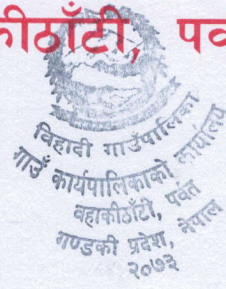 कीठाँटी, पर्व
विहादी गाउँपालिका
गाउँ कार्यपालिकाको कार्यालय
वहाकीठाँटी, पर्वत
गण्डकी प्रदेश, नेपाल
२०७३